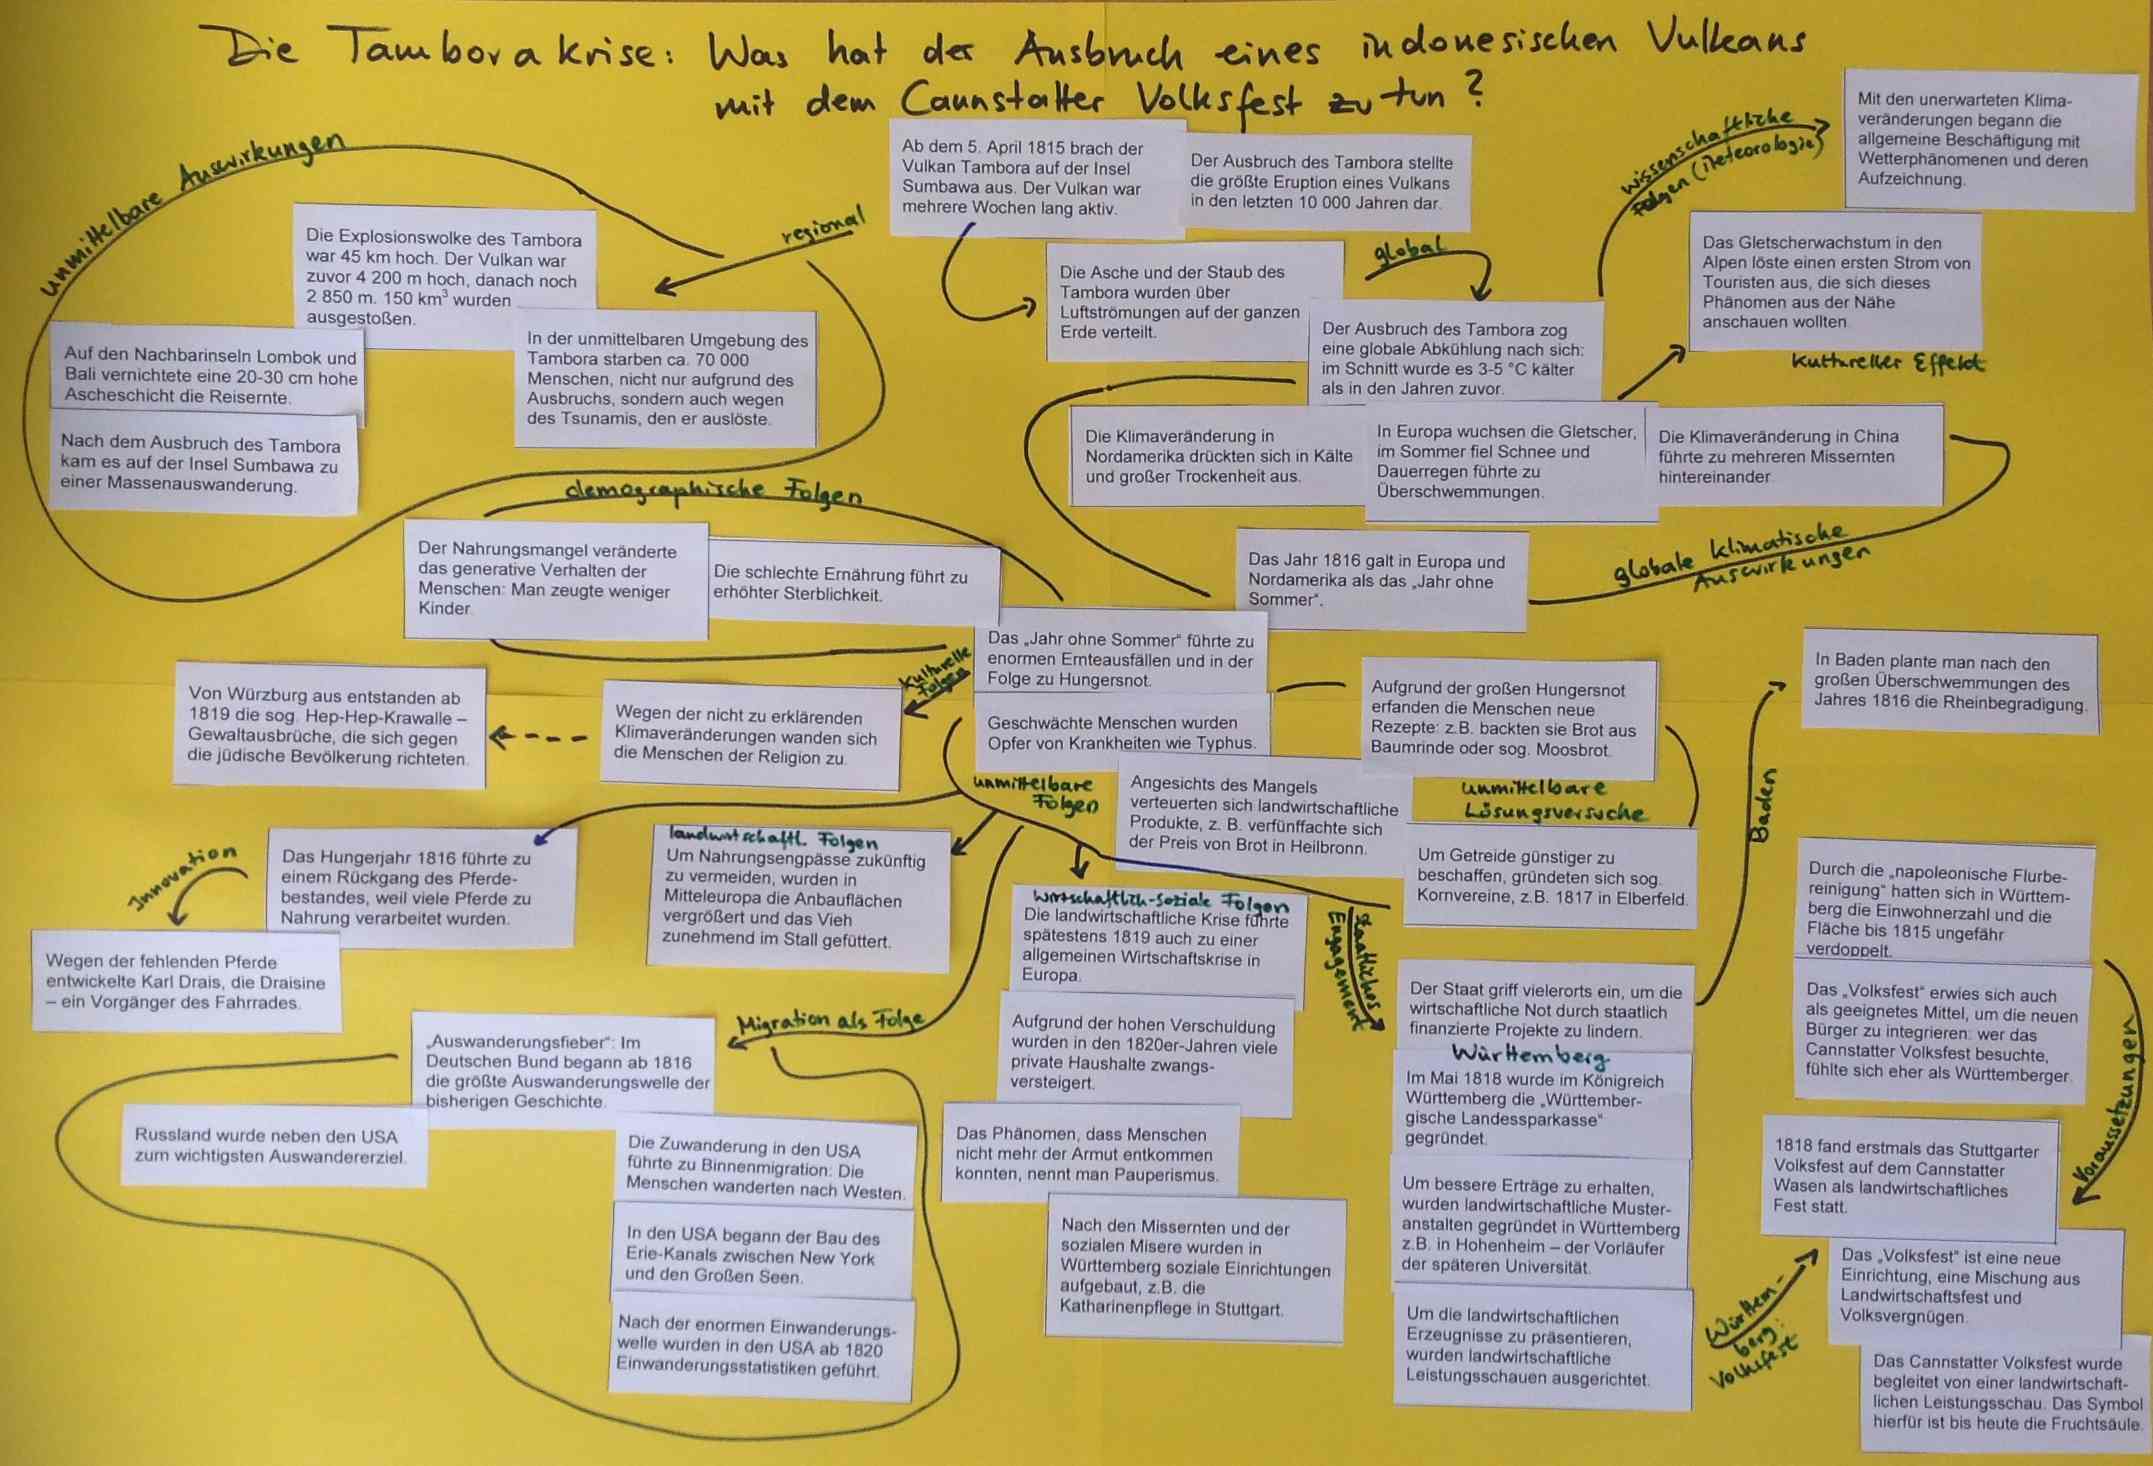 Die Tamborakrise: Was hat der Ausbruch eines indonesischen Vulkans
mit dem Cannstatter Volksfest zu tun?
Ab dem 5. April 1815 brach der
Vulkan Tambora auf der Insel
Sumbawa aus. Der Vulkan war
mehrere Wochen lang aktiv.
Der Ausbruch des Tambora stellte
die größte Eruption eines Vulkans
in den letzten 10 000 Jahren dar.
regional
unmittelbare Auswirkungen
Die Explosionswolke des Tambora
war 45 km hoch. Der Vulkan war
zuvor 4 200 m hoch, danach noch
2 850 m. 150 km³ wurden
ausgestoßen.
In der unmittelbaren Umgebung des
Tambora starben ca. 70 000
Menschen, nicht nur aufgrund des
Ausbruchs, sondern auch wegen
des Tsunamis, den er auslöste.
Auf den Nachbarinseln Lombok und
Bali vernichtete eine 20-30 cm hohe
Ascheschicht die Reisernte.
Nach dem Ausbruch des Tambora
kam es auf der Insel Sumbawa zu
einer Massenauswanderung.
Die Asche und der Staub des
Tambora wurden über
Luftströmungen auf der ganzen
Erde verteilt.
global
Der Ausbruch des Tambora zog
eine globale Abkühlung nach sich:
im Schnitt wurde es 3-5 °C kälter
als in den Jahren zuvor.
wissenschaftliche
Folgen (Meteorologie)
Mit den unerwarteten Klima-
veränderungen begann die
allgemeine Beschäftigung mit
Wetterphänomenen und deren
Aufzeichnung.
Das Gletscherwachstum in den
Alpen löste einen ersten Strom von
Touristen aus, die sich dieses
Phänomen aus der Nähe
anschauen wollten.
Kultureller Effekt
Die Klimaveränderung in
Nordamerika drückten sich in Kälte
und großer Trockenheit aus.
In Europa wuchsen die Gletscher,
im Sommer fiel Schnee und
Dauerregen führte zu
Überschwemmungen.
Die Klimaveränderung in China
führte zu mehreren Missernten
hintereinander.
globale klimatische
Auswirkungen
Das Jahr 1816 galt in Europa und
Nordamerika als das „Jahr ohne
Sommer“.
demographische Folgen
Der Nahrungsmangel veränderte
das generative Verhalten der
Menschen: Man zeugte weniger
Kinder.
Die schlechte Ernährung führt zu
erhöhter Sterblichkeit.
Das „Jahr ohne Sommer“ führte zu
enormen Ernteausfällen und in der
Folge zu Hungersnot.
Geschwächte Menschen wurden
Opfer von Krankheiten wie Typhus.
Angesichts des Mangels
verteuerten sich landwirtschaftliche
Produkte, z. B. verfünffachte sich
der Preis von Brot in Heilbronn.
unmittelbare
Folgen
Kulturelle
Folgen
Wegen der nicht zu erklärenden
Klimaveränderungen wanden sich
die Menschen der Religion zu.
Von Würzburg aus entstanden ab
1819 die sog. Hep-Hep-Krawalle –
Gewaltausbrüche, die sich gegen
die jüdische Bevölkerung richteten.
Aufgrund der großen Hungersnot
erfanden die Menschen neue
Rezepte: z.B. backten sie Brot aus
Baumrinde oder sog. Moosbrot.
unmittelbare
Lösungsversuche
Um Getreide günstiger zu
beschaffen, gründeten sich sog.
Kornvereine, z.B. 1817 in Elberfeld.
Baden
In Baden plante man nach den
großen Überschwemmungen des
Jahres 1816 die Rheinbegradigung.
Das Hungerjahr 1816 führte zu
einem Rückgang des Pferde-
bestandes, weil viele Pferde zu
Nahrung verarbeitet wurden.
Innovation
Wegen der fehlenden Pferde
entwickelte Karl Drais, die Draisine
– ein Vorgänger des Fahrrades.
landwirtschaftl. Folgen
Um Nahrungsengpässe zukünftig
zu vermeiden, wurden in
Mitteleuropa die Anbauflächen
vergrößert und das Vieh
zunehmend im Stall gefüttert.
wirtschaftlich-soziale Folgen
Die landwirtschaftliche Krise führte
spätestens 1819 auch zu einer
allgemeinen Wirtschaftskrise in
Europa.
Aufgrund der hohen Verschuldung
wurden in den 1820er-Jahren viele
private Haushalte zwangs-
versteigert.
Das Phänomen, dass Menschen
nicht mehr der Armut entkommen
konnten, nennt man Pauperismus.
Nach den Missernten und der
sozialen Misere wurden in
Württemberg soziale Einrichtungen
aufgebaut, z.B. die
Katharinenpflege in Stuttgart.
Migration als Folge
„Auswanderungsfieber“: Im
Deutschen Bund begann ab 1816
die größte Auswanderungswelle der
bisherigen Geschichte.
Russland wurde neben den USA
zum wichtigsten Auswandererziel.
Die Zuwanderung in den USA
führte zu Binnenmigration: Die
Menschen wanderten nach Westen.
In den USA begann der Bau des
Erie-Kanals zwischen New York
und den Großen Seen.
Nach der enormen Einwanderungs-
welle wurden in den USA ab 1820
Einwanderungsstatistiken geführt.
Staatliches
Engagement
Der Staat griff vielerorts ein, um die
wirtschaftliche Not durch staatlich
finanzierte Projekte zu lindern.
Württemberg
Im Mai 1818 wurde im Königreich
Württemberg die „Württember-
gische Landessparkasse“
gegründet.
Um bessere Erträge zu erhalten,
wurden landwirtschaftliche Muster-
anstalten gegründet in Württemberg
z.B. in Hohenheim – der Vorläufer
der späteren Universität.
Um die landwirtschaftlichen
Erzeugnisse zu präsentieren,
wurden landwirtschaftliche
Leistungsschauen ausgerichtet.
Württem-
berg:
Volksfest
Durch die „napoleonische Flurbe-
reinigung“ hatten sich in Württem-
berg die Einwohnerzahl und die
Fläche bis 1815 ungefähr
verdoppelt.
Das „Volksfest“ erwies sich auch
als geeignetes Mittel, um die neuen
Bürger zu integrieren: wer das
Cannstatter Volksfest besuchte,
fühlte sich eher als Württemberger.
Voraussetzungen
1818 fand erstmals das Stuttgarter
Volksfest auf dem Cannstatter
Wasen als landwirtschaftliches
Fest statt.
Das „Volksfest“ ist eine neue
Einrichtung, eine Mischung aus
Landwirtschaftsfest und
Volksvergnügen.
Das Cannstatter Volksfest wurde
begleitet von einer landwirtschaft-
lichen Leistungsschau. Das Symbol
hierfür ist bis heute die Fruchtsäule.